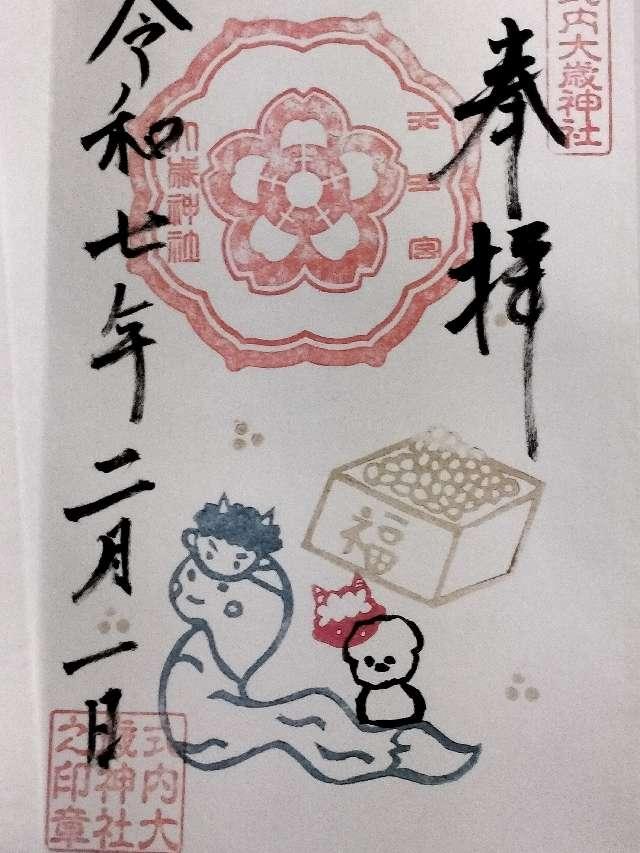 式内大歳神社
奉拝
天王宮
大歳神社
福
令和七年二月一日
式内大
歳神社
之印章